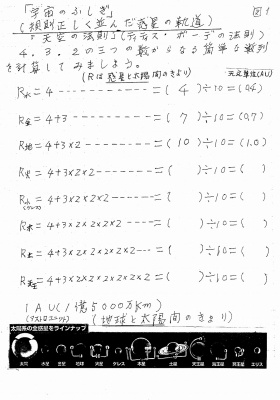 「宇宙のふしぎ」 図1
(規則正しく並んだ惑星の軌道)
「天空の法則」(ティティス・ボーデの法則)
4.3.2の三つの数からなる簡単な数列
を計算してみましょう。
(Rは惑星と太陽間のきょり) 天文単位(AU)
R水=4----------=( 4 )÷10=(0.4)
R金=4+3---------=( 7 )÷10=(0.7)
R地=4+3×2-------=( 10 )÷10=(1.0)
R火=4+3×2×2------=( )÷10=( )
R小=4+3×2×2×2----=( )÷10=( )
R木=4+3×2×2×2×2---=( )÷10=( )
R土=4+3×2×2×2×2×2--=( )÷10=( )
R天王=4+3×2×2×2×2×2×2=( )÷10=( )
1AU(1億5000万km)
(地球と太陽間のきょり)
太陽系の全惑星をラインナップ
太陽 水星 金星 地球 火星 ケレス 木星 土星 天王星 海王星 冥王星 エリス